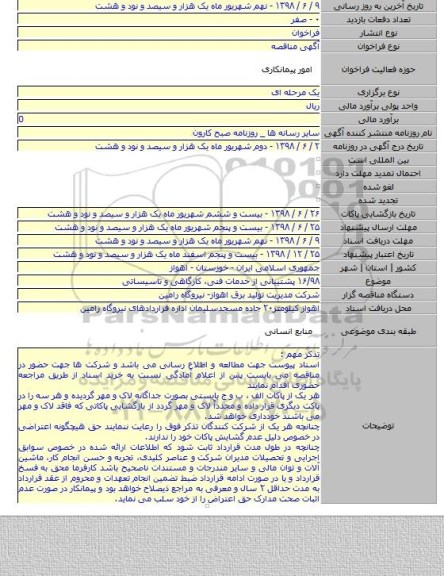 تاریخ آخرین به روز رسانی ۹ / ۶ / ۱۳۹۸ - نهم شهریور ماه یک هزار و سیصد و نود و هشت
تعداد دفعات بازدید ۰ - صفر
نوع انتشار فراخوان
نوع فراخوان آگهی مناقصه
حوزه فعالیت فراخوان امور پیمانکاری
نوع برگزاری یک مرحله ای
واحد پولی برآورد مالی ریال
برآورد مالی 0
نام روزنامه منتشر کننده آگهی سایر رسانه ها _ روزنامه صبح کارون
تاریخ درج آگهی در روزنامه ۲ / ۶ / ۱۳۹۸ - دوم شهریور ماه یک هزار و سیصد و نود و هشت
بین المللی است
احتمال تمدید مهلت دارد
لغو شده
تجدید شده
تاریخ بازگشایی پاکات ۲۶ / ۶ / ۱۳۹۸ - بیست و ششم شهریور ماه یک هزار و سیصد و نود و هشت
مهلت ارسال پیشنهاد ۲۵ / ۶ / ۱۳۹۸ - بیست و پنجم شهریور ماه یک هزار و سیصد و نود و هشت
مهلت دریافت اسناد ۹ / ۶ / ۱۳۹۸ - نهم شهریور ماه یک هزار و سیصد و نود و هشت
تاریخ اعتبار پیشنهاد ۲۵ / ۱۲ / ۱۳۹۸ - بیست و پنجم اسفند ماه یک هزار و سیصد و نود و هشت
کشور | استان | شهر جمهوری اسلامی ایران - خوزستان - اهواز
موضوع ۱۶/۹۸ پشتیبانی از خدمات فنی، کارگاهی و تاسیساتی
دستگاه مناقصه گزار شرکت مدیریت تولید برق اهواز- نیروگاه رامین
محل دریافت اسناد اهواز کیلومتر۲۰ جاده مسجدسلیمان اداره قراردادهای نیروگاه رامین
طبقه بندی موضوعی منابع انسانی
توضیحات
تذکر مهم :
اسناد پیوست جهت مطالعه و اطلاع رسانی می باشد و شرکت ها جهت حضور در
مناقصه می بایست پس از اعلام آمادگی نسبت به خرید اسناد از طریق مراجعه
حضوری اقدام نمایند
هر یک از پاکات الف ، ب و ج بایستی بصورت جداگانه لاک و مهر گردیده و هر سه را در
پاکت دیگری قرار داده و مجدداً لاک و مهر گردد از بازگشایی پاکاتی که فاقد لاک و مهر
می باشند خودداری خواهد شد.
چنانچه هر یک از شرکت کنندگان تذکر فوق را رعایت ننمایند حق هیچگونه اعتراضی
در خصوص دلیل عدم گشایش پاکات خود را ندارند.
چنانچه در طول مدت قرارداد ثابت شود که اطلاعات ارائه شده در خصوص سوابق
اجرایی و تحصیلات مدیران شرکت و عناصر کلیدی، تجربه و حسن انجام کار، ماشین
آلات و توان مالی و سایر مندرجات و مستندات ناصحیح باشد کارفرما محق به فسخ
قرارداد و یا در صورت ادامه قرارداد ضبط تضمین انجام تعهدات و محروم از عقد قرارداد
به مدت حداقل ۲ سال و معرفی به مراجع ذیصلاح خواهد بود و پیمانکار در صورت عدم
اثبات صحت مدارک حق اعتراض را از خود سلب می نماید.